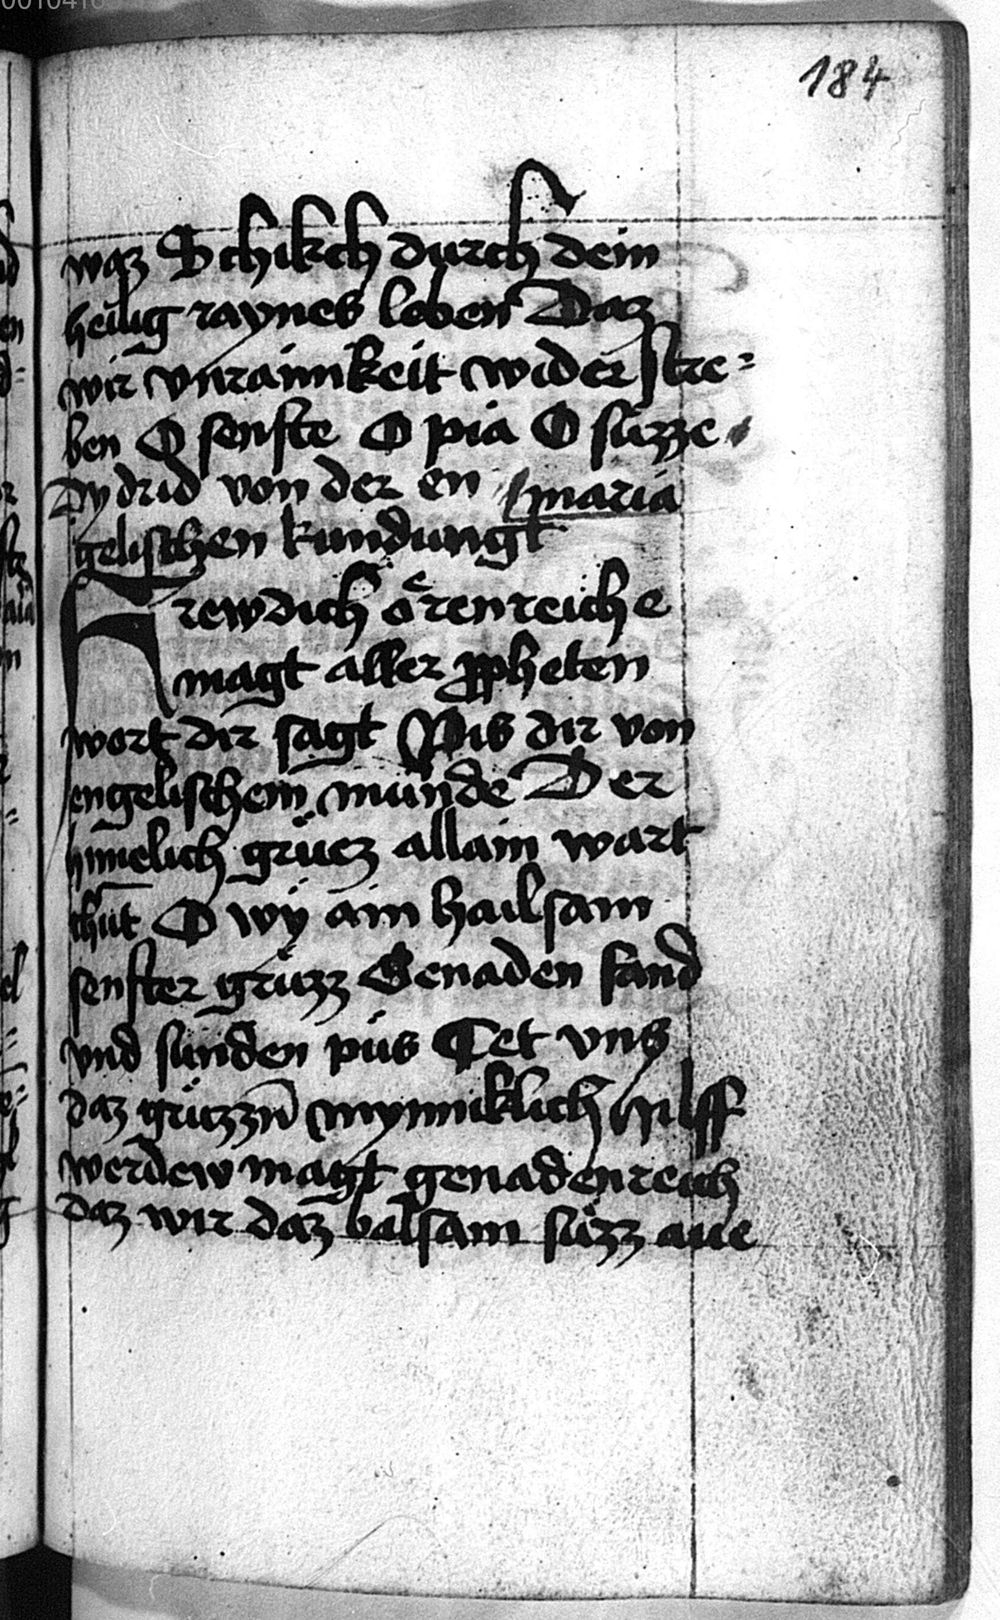 0010416
184
waz Schikch durch dein
heilig raynes leben Daz
wir vnrainikeit wider stre=
ben O senfte O pia O süzze
Dy drid von der en maria
gelischen kundungt
Frewdich örenreiche
magt aller ꝓpheten
wort dir sagt Pis dir von
engelischem munde Der
himelich grüez allain wart
chüt O wy ain hailsam
senfter grüzz Genaden fand
vnd sünden püs Tet vns
daz grüzzn mynniklich Hilff
werdew magt genadenreich
daz wir daz balsam süzz aue